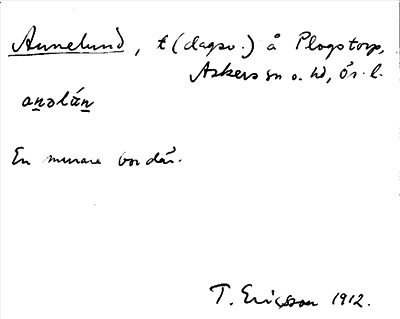 Annelund, t (dagsv.) å Plogstorp,
Askers sn o. hd, Ör. l.
anəlún
En murare bor där.
T. Ericsson 1912.